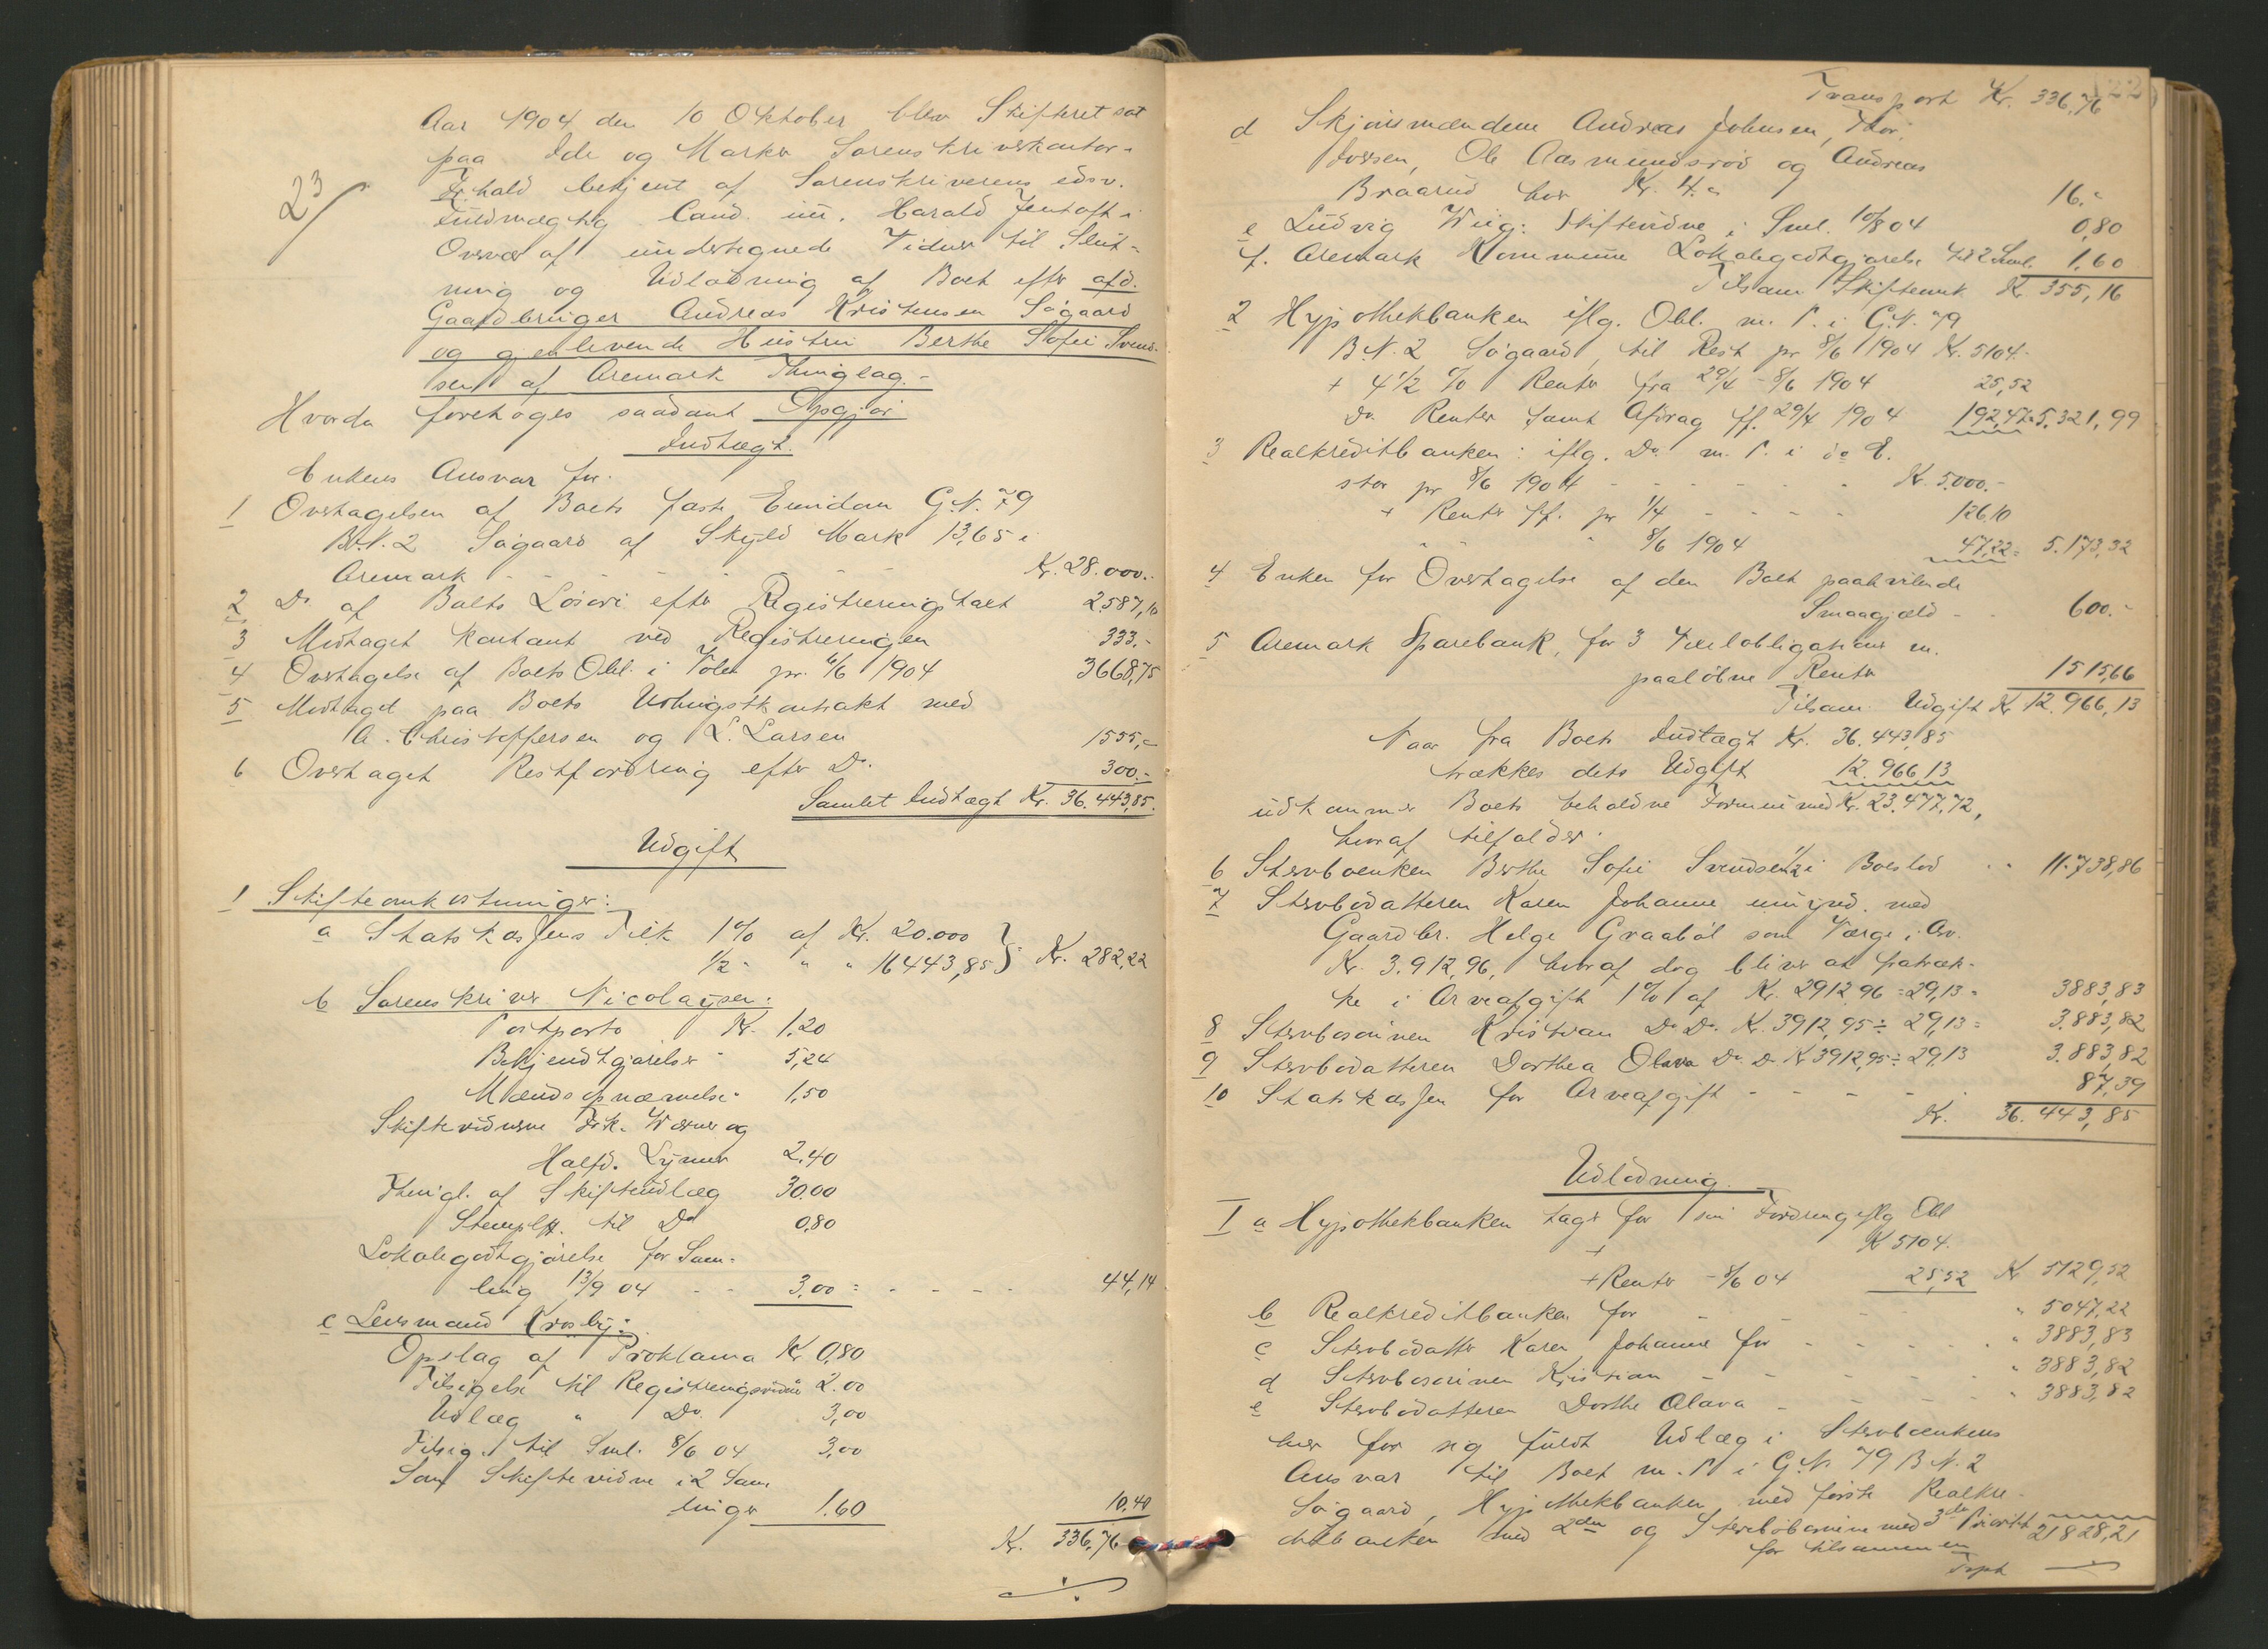 23
Aar 1904 den 10 Oktober blev Skifteret sat
paa Ide og Marker Sorenskriverkontor
Fr.hald betjent af Sorenskriverens edsv.
Fuldmægtig Cand. jur. Harald Jentoft i
Overvær af undertegnede Vidner til Slut-
ning og Udlodning af Boet efter afd.
Gaardbruger Andreas Kristensen Sögaard
og gjenlevende Hustru Berthe Sofie Svend-
sen af Aremark Thinglag.-
Hvorda foretoges saadant Opgjör
Indtægt.
Enkens Ansvar for.
1 Overtagelsen af Boets faste Eiendom G.N. 79
B.N. 2 Sögaard af Skyld Mark 13,65 i
Aremark - - - - - Kr. 28.000.-
2 Do af Boets Lösöre efter Registreringstaxt 2.587,10
3 Modtaget kontant ved Registreringen 333.-
4 Overtagelse af Boets Obl. i Volen pr. 8/6 1904 3668,75
5 Modtaget paa Boets Udhugstkontrakt med
A. Christoffersen og L. Larsen 1555,-
6 Overtaget Restfordring efter Do. 300.-
Samlet Indtægt Kr. 36.443,85.
Udgift
1 Skifteomkostninger:
a Statskassens Tilk 1% af Kr. 20.000
1/2 " " " 16443,85 } Kr. 282,22
b Sorenskriver Nicolaysen.
Postporto Kr. 1,20
Bekjendtgjörelser " 5,24
Mændsopnævnelse " 1,50
Skiftevidnerne Frk. Werner og
Halfd. Lynner 2,40
Thingl. af Skifteudlæg 30.00
Stemplet. til Do 0,80
Lokalegodtgjörelse for Sam-
ling 13/9 04 - - 3,00 = - - - - 44,14
c Lensmand Krosby:
Opslag af Proklama Kr 0,80
Tilsigelse til Registreringsvidne 2.00
Udlæg " Do. 3,00
Tilsig. til Sml. 8/6 04 3,00
Som Skiftevidne i 2 Sam
linger 1.60 10,40
Kr. 336,76
Transport Kr. 336,76
22
d Skjönsmændene Andreas Johnsen, Thor
Iversen, Ole Aasmundsröd og Andreas
Braarud hver Kr. 4.- 16.-
e Ludvig Wiig: Skiftevidne i Sml. 10/8 04 0,80
f. Aremark Kommune Lokalegodtgjörelse til 2 Sml. 1,60
Tilsam Skifteomk. Kr. 355,16
2 Hypothekbanken iflg. Obl. m. P. i G.N. 79
B.N. 2 Sögaard, til Rest pr 8/6 1904 Kr. 5104.-
+ 4 1/2 % Renter fra 29/4 - 8/6 1904 25,52
Do Renter samt Afdrag ff. 29/4 1904 192,47 = 5.321,99
3 Realkreditbanken: iflg. Do m. P. i do E.
stor pr 8/6 1904 - - - - - Kr. 5.000.-
+ Renter ff. pr 1/4 - - - - 126,10
" " " 8/6 1904 47,22 = 5.173,32
4 Enken for Overtagelse af den Boet paahvilende
Smaagjæld - - 600.-
5 Aremark Sparebank, for 3 Vexelobligationer m.
paalöbne Renter 1515,66
Tilsam. Udgift Kr 12.966,13
Naar fra Boets Indtægt Kr. 36.443,85
trækkes dets Udgift 12.966,13
udkommer Boets beholdne Formue med Kr. 23.477,72,
hvoraf tilfalder.
6 Stervboenken Berthe Sofie Svendsen 1/2 i Boeslod 11.738,86
7 Stervbodatteren Karen Johanne umynd. med
Gaardbr. Helge Graaböl som Værge i Arv.
Kr. 3.912,96, hvoraf dog bliver at fratræk-
ke i Arveafgift 1% af Kr. 2912,96 = 29,13 = 3883,83
8 Stervbosönnen Kristian Do Do. Kr. 3912,95 ÷ 29,13 = 3.883,82
9 Stervbodatteren Dorthea Olava Do Do Kr 3912,95 ÷ 29,13 3.883,82
10 Statskassen for Arveafgift - - - - 87,39
Kr. 36.443,85
Udlodning.
I a Hypothekbanken tager for sin Fordring iflg Obl
Kr 5104.
+ Renter - 8/6 04 25,52 Kr 5129,52
b Realkreditbanken for - - - - " 5047,22
c Stervbodatter Karen Johanne for - - - - " 3883,83
d Stervbosönnen Kristian - - - - " 3883,82
e Stervbodatteren Dorthe Olava - - - - " 3883,82
hver for sig fuldt Udlæg i Stervboenkens
Ansvar til Boet m. P. i G.N. 79 B.N. 2
Sögaard, Hypothekbanken med förste Realkre-
ditbanken med 2den og Stervböbörnene med 3die Prioritet
for tilsammen 21828,21
Trpt